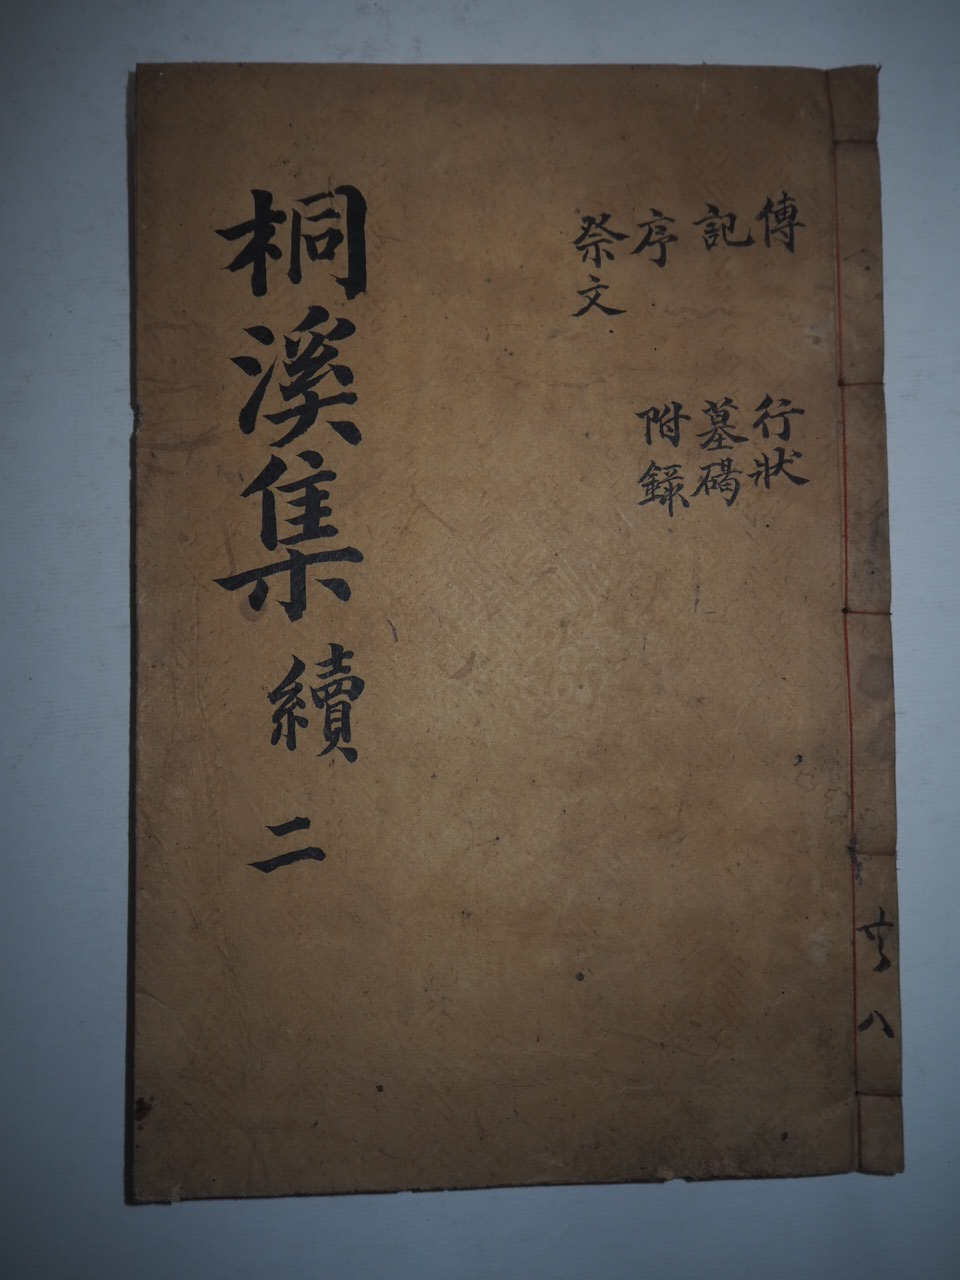 傳
記
序
祭文
行狀
墓碣
附錄
桐溪集 續 二
共八